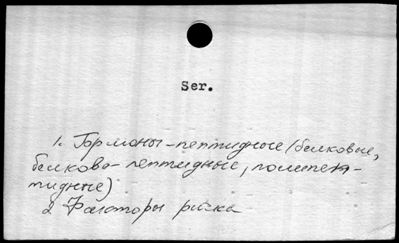 Ser.
1. Гормоны-пептидные (белковые,
белково-пептидные, полипеп-
тидные)
2 Факторы риска